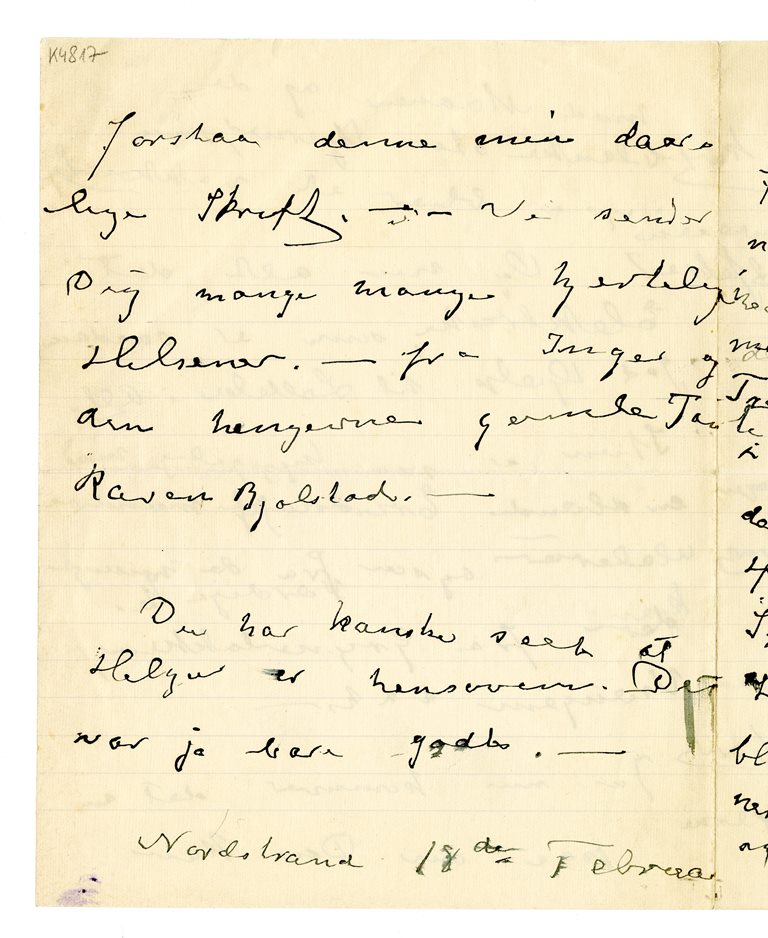 K4817
Forstaa denne min daar-
lige Skrift. — Vi sender
Dig mange mange hjertelige
Helsener. — fra Inger og
den hengivne gamle Tante
Karen Bjølstad. —
Du har kanske seet at
Helga er hensoven. Det
var ja bare godt. —
Nordstrand 18de Februa